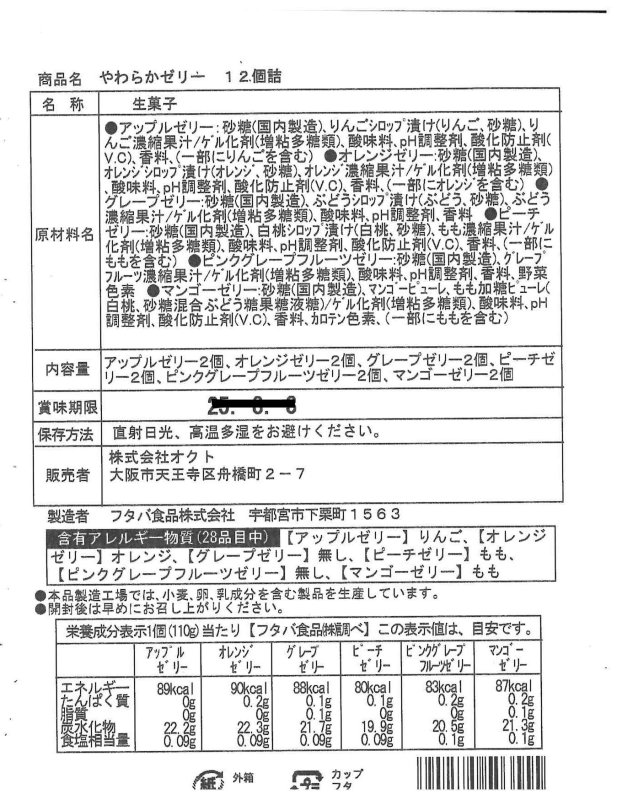 商品名 やわらかゼリー 12個詰
名称 生菓子
原材料名
●アップルゼリー:砂糖(国内製造)、りんごシロップ漬け(りんご、砂糖)、り
んご濃縮果汁/ゲル化剤(増粘多糖類)、酸味料、pH調整剤、酸化防止剤
(V.C)、香料、(一部にりんごを含む) ●オレンジゼリー:砂糖(国内製造)、
オレンジシロップ漬け(オレンジ、砂糖)、オレンジ濃縮果汁/ゲル化剤(増粘多糖類)
、酸味料、pH調整剤、酸化防止剤(V.C)、香料、(一部にオレンジを含む) ●
グレープゼリー:砂糖(国内製造)、ぶどうシロップ漬け(ぶどう、砂糖)、ぶどう
濃縮果汁/ゲル化剤(増粘多糖類)、酸味料、pH調整剤、香料 ●ピーチ
ゼリー:砂糖(国内製造)、白桃シロップ漬け(白桃、砂糖)、もも濃縮果汁/ゲル
化剤(増粘多糖類)、酸味料、pH調整剤、酸化防止剤(V.C)、香料、(一部に
ももを含む) ●ピンクグレープフルーツゼリー:砂糖(国内製造)、グレープ
フルーツ濃縮果汁/ゲル化剤(増粘多糖類)、酸味料、pH調整剤、香料、野菜
色素 ●マンゴーゼリー:砂糖(国内製造)、マンゴーピューレ、もも加糖ピューレ(
白桃、砂糖混合ぶどう糖果糖液糖)/ゲル化剤(増粘多糖類)、酸味料、pH
調整剤、酸化防止剤(V.C)、香料、カロテン色素、(一部にももを含む)
内容量
アップルゼリー2個、オレンジゼリー2個、グレープゼリー2個、ピーチゼ
リー2個、ピンクグレープフルーツゼリー2個、マンゴーゼリー2個
賞味期限
保存方法 直射日光、高温多湿をお避けください。
販売者
株式会社オクト
大阪市天王寺区舟橋町2-7
製造者 フタバ食品株式会社 宇都宮市下栗町1563
含有アレルギー物質(28品目中)【アップルゼリー】りんご、【オレンジ
ゼリー】オレンジ、【グレープゼリー】無し、【ピーチゼリー】もも、
【ピンクグレープフルーツゼリー】無し、【マンゴーゼリー】もも
●本品製造工場では、小麦、卵、乳成分を含む製品を生産しています。
●開封後は早めにお召し上がりください。
栄養成分表示1個(110g)当たり【フタバ食品(株)調べ】この表示値は、目安です。
アップルゼリー オレンジゼリー グレープゼリー ピーチゼリー ピンクグレープフルーツゼリー マンゴーゼリー
エネルギー 89kcal 90kcal 88kcal 80kcal 83kcal 87kcal
たんぱく質 0g 0.2g 0.1g 0.1g 0.2g 0.2g
脂質 0g 0g 0.1g 0g 0g 0.1g
炭水化物 22.2g 22.3g 21.7g 19.9g 20.5g 21.3g
食塩相当量 0.09g 0.09g 0.09g 0.09g 0.1g 0.1g
紙 外箱 プラ カップ
フタ